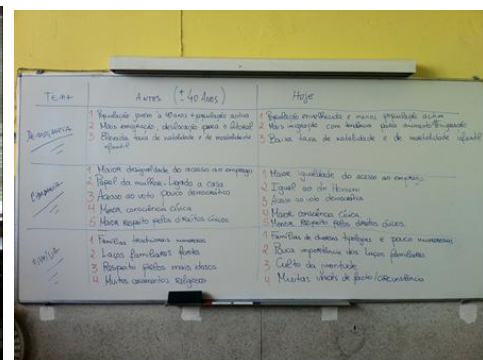 TEMA ANTES (± 40 Anos) Hoje
DEMOGRAFIA
1 População jovem à 40 anos + população activa
2 Mais emigração, deslocação para o litoral
3 Elevada taxa de natalidade e de mortalidade
infantil
1 População envelhecida e menos população activa
2 Mais imigração com tendência para aumento
3 Baixa taxa de natalidade e de mortalidade infantil
CIDADANIA
1 Maior desigualdade de acesso ao emprego
2 Papel da mulher - Ligado a casa
3 Acesso ao voto pouco democrático
4 Menor consciência cívica
5 Maior respeito pelos direitos cívicos
1 Maior igualdade do acesso ao emprego
2 Igual ao do Homem
3 Acesso ao voto democrático
4 Maior consciência cívica
5 Menor Respeito pelos direitos cívicos.
FAMÍLIA
1 Famílias tradicionais numerosas
2 Laços familiares fortes
3 Respeito pelos mais idosos
4 Muitos casamentos religiosos
1 Famílias de diversas tipologias e pouco numerosas
2 Pouca importância dos laços familiares
3 Culto da juventude
4 Muitas uniões de facto/circunstância